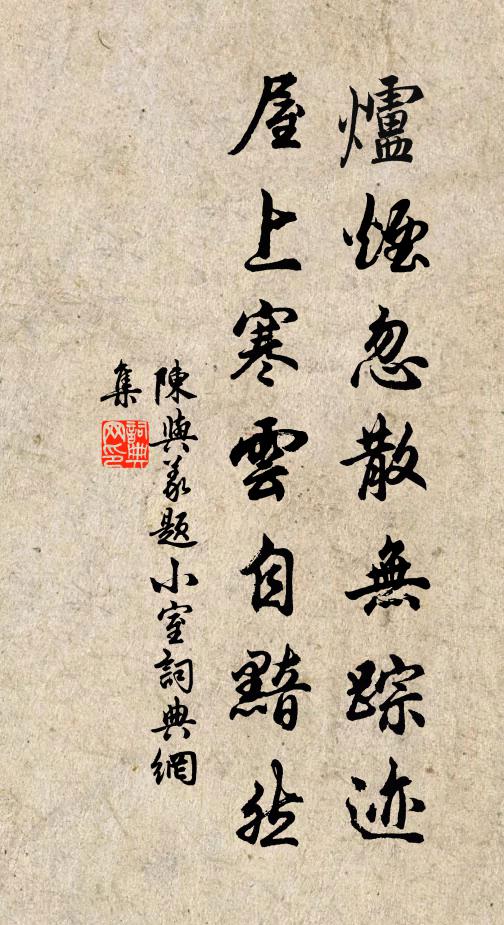 爐煙忽散無踪迹
屋上寒雲自黯然
陳與義題小室詞典網
集
詞典
网印